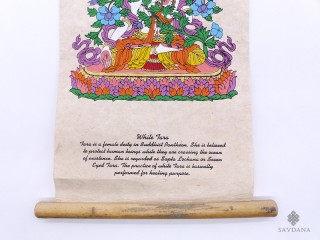 White Tara
Tara is a female deity in Buddhist Pantheon. She is believed
to protect human beings while they are crossing the ocean
of existence. She is regarded as Sapta Lochana or Seven
Eyed Tara. The practice of white Tara is basically
performed for healing purpose.
SAVDANA